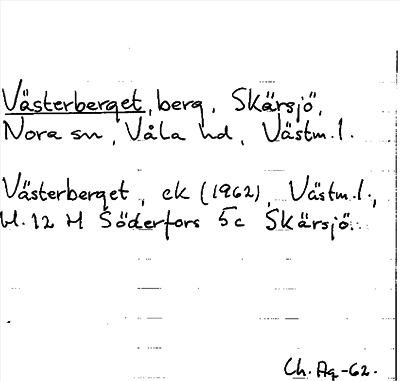 Västerberget, berg, Skärsjö,
Nora sn, Våla hd, Västm.l.
Västerberget, ek (1962), Västm.l.,
bl. 12 H Söderfors 5c Skärsjö.
Ch. Ag -62.